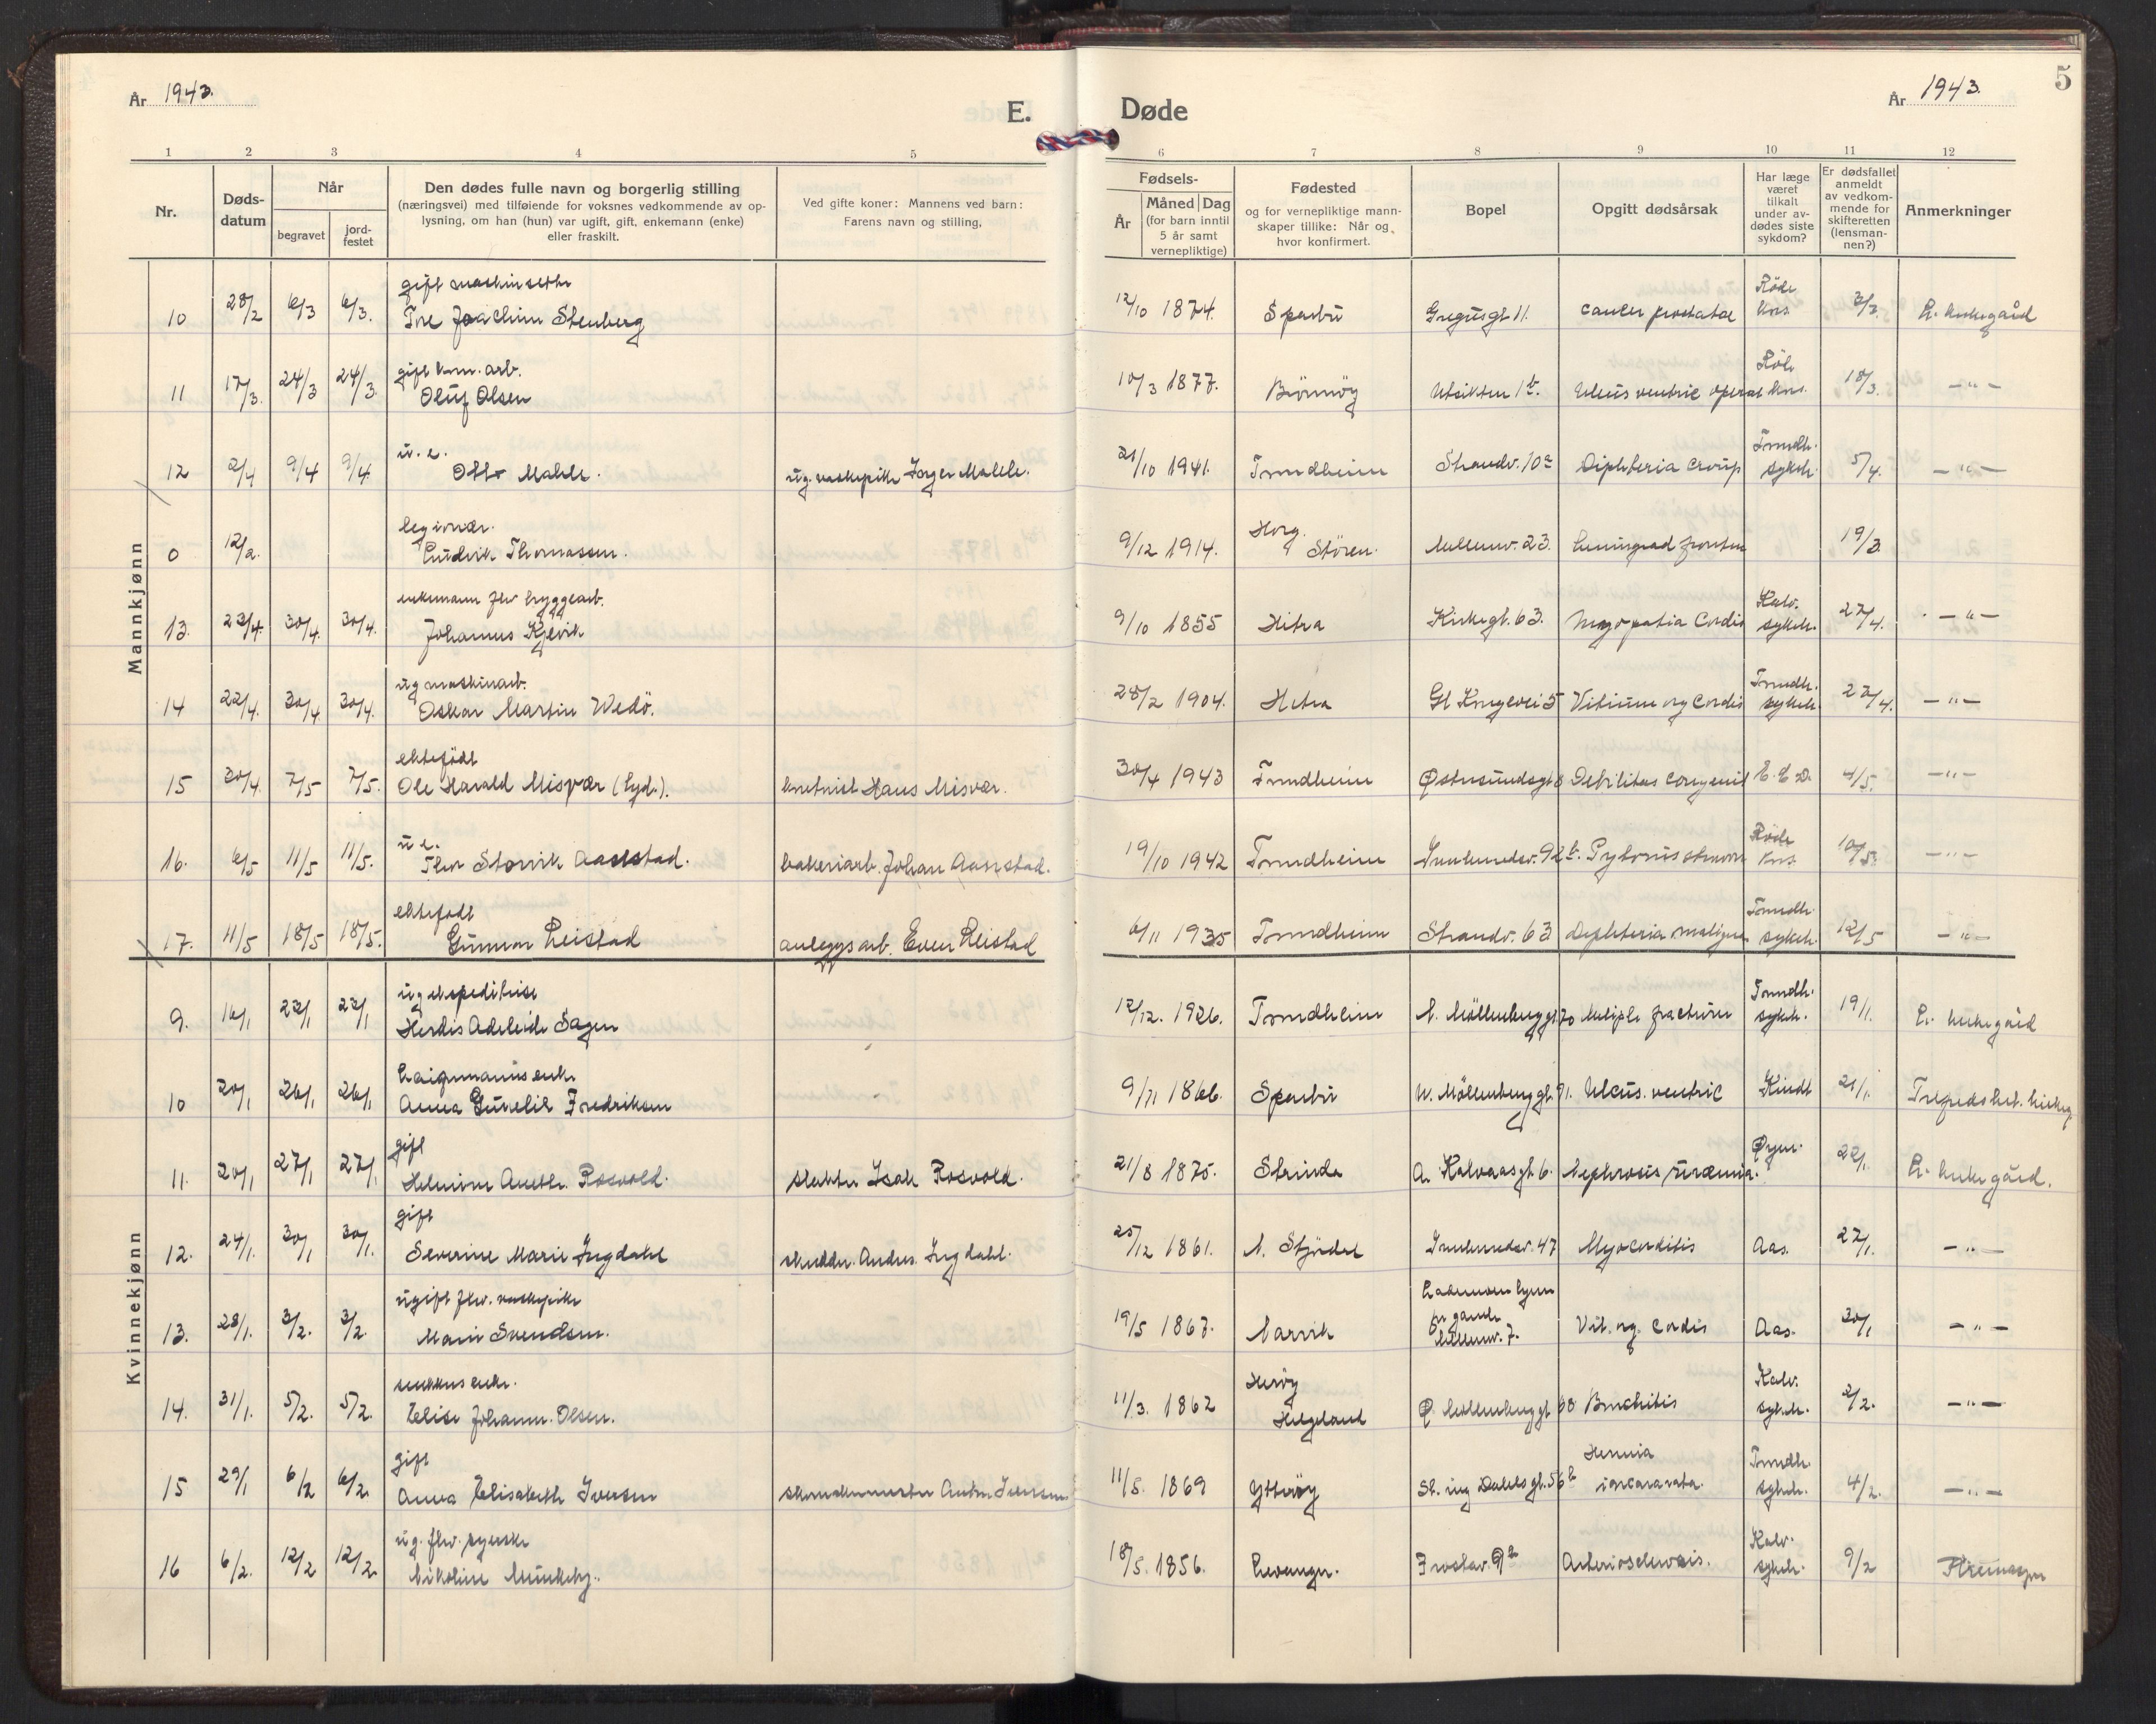 År 1943.
E.
Døde
År 1943.
5
1 2 3 4 5 6 7 8 9 10 11 12
Nr.
Døds-
datum
Når
begravet
jord-
festet
Den dødes fulle navn og borgerlig stilling
(næringsvei) med tilføiende for voksnes vedkommende av op-
lysning, om han (hun) var ugift, gift, enkemann (enke)
eller fraskilt.
Ved gifte koner: Mannens ved barn:
Farens navn og stilling,
Fødsels-
År
Måned Dag
(for barn inntil
5 år samt
vernepliktige)
Fødested
og for vernepliktige mann-
skaper tillike: Når og
hvor konfirmert.
Bopel
Opgitt dødsårsak
Har læge
været
tilkalt
under av-
dødes siste
sykdom?
Er dødsfallet
anmeldt
av vedkom-
mende for
skifteretten
(lensman-
nen?)
Anmerkninger
Mannkjønn
gift Røde
10 28/2 6/3 6/3. Tore Joachim Stenberg 12/10 1874. Sparbu Gregusgt 11. cancer prostatae Kors. 3/3. L. kirkegård
gift kom. arb.
11 17/3. 24/3 24/3. Oluf Olsen 10/3 1877. Brönnöy Utsikten 1b. Ulcus ventric operat Kors. 18/3. -"-
u. e. Trondh.
12 2/4 9/4 9/4. Otto 21/10 1941. Trondheim Strandv. 10a Diphteria croup sykeh. 5/4. -"-
legionær. Horg.
0 12/2. Ludvik Thomassen. 9/12 1914. Stören. Mellemv. 23. Leningrad fronten 19/3.
enkemann fhv bryggearb. Kalv.
13. 23/4. 30/4. 30/4. Johannes Kjelvik 9/10 1855 Hitra Kirkegt. 63. Myopatia Cordis sykeh. 27/4. -"-
ug maskinarb. Trondh.
14 22/4. 30/4 30/4. Oskar Martin Wedö. 28/2 1904. Hitra Gl Kongevei 5 Vitium org Cordis sykeh. 27/4. -"-
ektefödt
15 30/4. 7/5 7/5. Ole Harald Misvær (Tyd.). Hans Misvær. 30/4 1943 Trondheim Østersundsgt 8 Debilitas congenit E. C. D. 4/5. -"-
u e. Røde
16. 6/5 11/5 11/5. Thor Storvik Aastad. bakeriarb. Johan Aastad. 19/10 1942 Trondheim Innherredsv. 92b. Kors 10/5. -"-
ektefödt Trondh.
17. 11/5 18/5 18/5. Gunnar Leistad anleggsarb. Even Leistad 6/11 1935 Trondheim Strandv. 63 Diphteria maligna sykeh. 12/5 -"-
Kvinnekjønn
ug ekspeditrise Trondh.
9. 16/1 23/1 23/1 Herdis Adeleide Sagen 12/12. 1926. Trondheim N. Möllenberggt. 70 Multiple fracturer sykeh. 19/1. L. kirkegård
10 20/1 26/1 26/1 Anna Gurelie Fredriksen 9/11 1866. Sparbu N. Möllenberggt. 91. Ulcus. ventric Kindt 21/1.
gift
11. 20/1 27/1 27/1 Helmine Anethe Rosvold. slakter Isak Rosvold. 21/8 1875. Strinda A. Kalvaasgt. 6. Nephrosis, uræmia. 22/1. L. kirkegård.
gift
12. 24/1. 30/1 30/1. Severine Marie Ingdahl skredder. Andres. Ingdahl. 25/12 1861. N. Stjördal Innherredsv. 47 Myocarditis Aas. 27/1. -"-
ugift fhv. vaskepike
13. 28/1. 3/2. 3/2. Marie Svendsen. 19/5 1867. Narvik Mellemv. 7. Vit. org. Cordis Aas. 30/1 -"-
enke. Heröy Kalv.
14. 31/1. 5/2. 5/2. Elise Johanne. Olsen. 11/3. 1862 Helgeland Ø. Möllenberggt 68 Bronchitis sykeh. 2/2. -"-
gift Hernia Trondh.
15 29/1 6/2 6/2. Anna Elisabeth Iversen Anton Iversen 11/5. 1869 Ytteröy St. ing Dahlsgt. 56b incararata. sykeh. 4/2. -"-
ug. fhv. syerske Kalv.
16 6/2. 12/2 12/2. Nikoline Munkeby. 18/5. 1856. Levanger. Frostav. 9b Arteriosclerosis. sykeh. 9/2